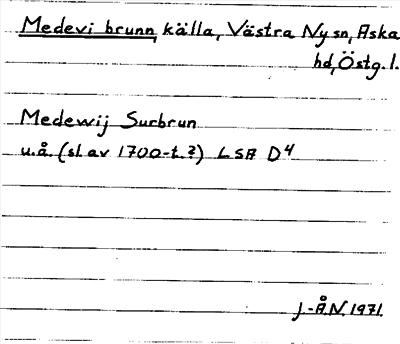 Medevi brunn, källa, Västra Ny sn, Aska
hd, Östg. l.
Medewij Surbrun
u.å. (sl. av 1700-t.?) LSA D4
J.-Å.N. 1971.